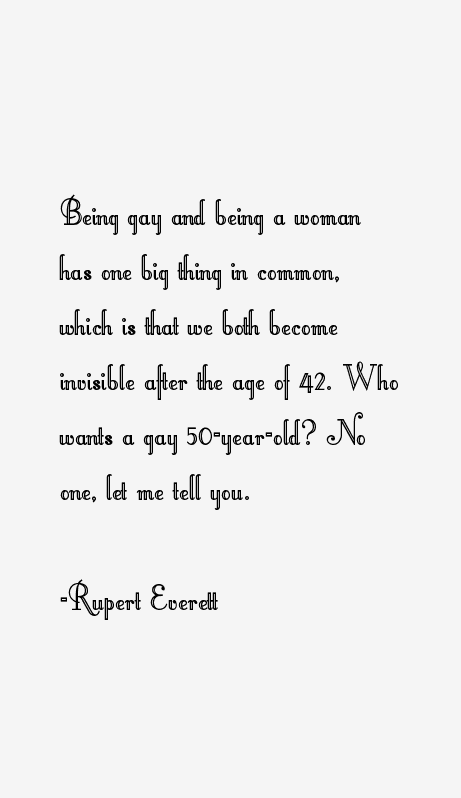 Being gay and being a woman
has one big thing in common,
which is that we both become
invisible after the age of 42. Who
wants a gay 50-year-old? No
one, let me tell you.
-Rupert Everett